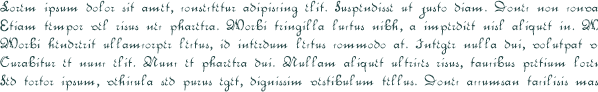 Lorem ipsum dolor sit amet, consectetur adipiscing elit. Suspendisse ut justo diam. Donec non conva
Etiam tempor vel risus nec pharetra. Morbi fringilla luctus nibh, a imperdiet nisl aliquet in. M
Morbi hendrerit ullamcorper lectus, id interdum lectus commodo at. Integer nulla dui, volutpat v
Curabitur et nunc elit. Nunc et pharetra dui. Nullam aliquet ultrices risus, faucibus pretium lore
Sed tortor ipsum, vehicula sed purus eget, dignissim vestibulum tellus. Donec accumsan facilisis mas